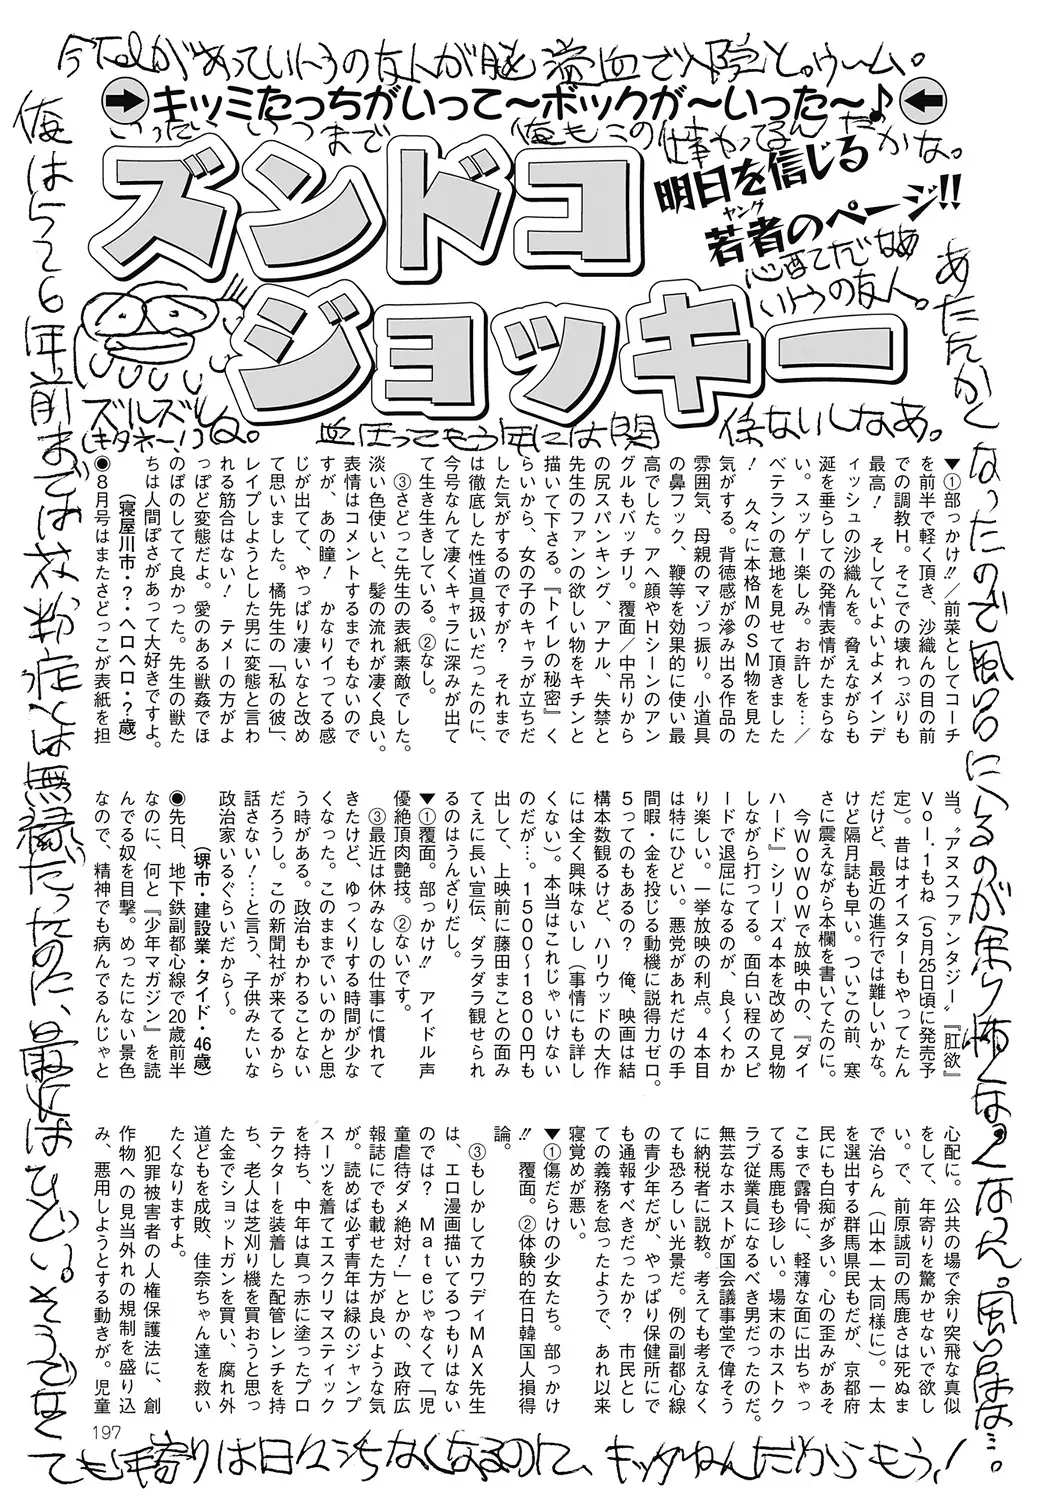 今TELがあっていトウの友人が脳溢血で入院と。ウーム。
キッミたっちがいって〜ボックが〜いった〜♪
いったいいつまで俺もこの仕事やってるんだかな。
ズンドコ
ジョッキー
明日を信じる
若者のページ!!
ヤング
心配だなあ
いトウの友人。
ズルズルQ。
(キタネー!)
血圧ってもう年には関係ないしなあ。
▼①部っかけ!!／前菜としてコーチ
を前半で軽く頂き、沙織んの目の前
での調教H。そこでの壊れっぷりも
最高!　そしていよいよメインデ
ィッシュの沙織んを。脅えながらも
涎を垂らしての発情表情がたまらな
い。スッゲー楽しみ。お許しを…／
ベテランの意地を見せて頂きました
!　久々に本格MのSM物を見た
気がする。背徳感が滲み出る作品の
雰囲気、母親のマゾっ振り。小道具
の鼻フック、鞭等を効果的に使い最
高でした。アヘ顔やHシーンのアン
グルもバッチリ。覆面／中吊りから
の尻スパンキング、アナル、失禁と
先生のファンの欲しい物をキチンと
描いて下さる。『トイレの秘密』く
らいから、女の子のキャラが立ちだ
した気がするのですが?　それまで
は徹底した性道具扱いだったのに、
今号なんて凄くキャラに深みが出て
て生き生きしている。②なし。
　③さどっこ先生の表紙素敵でした。
淡い色使いと、髪の流れが凄く良い。
表情はコメントするまでもないので
すが、あの瞳!　かなりイってる感
じが出てて、やっぱり凄いなと改め
て思いました。橘先生の「私の彼」、
レイプしようとした男に変態と言わ
れる筋合はない!　テメーの方がよ
っぽど変態だよ。愛のある獣姦でほ
のぼのしてて良かった。先生の獣た
ちは人間ぽさがあって大好きですよ。
（寝屋川市・?・ヘロヘロ・?歳）
◉8月号はまたさどっこが表紙を担
当。〝アヌスファンタジー〟『肛欲』
Vol.1もね（5月25日頃に発売予
定）。昔はオイスターもやってたん
だけど、最近の進行では難しいかな。
けど隔月誌も早い。ついこの前、寒
さに震えながら本欄を書いてたのに。
　今WOWOWで放映中の、『ダイ
ハード』シリーズ4本を改めて見物
しながら打ってる。面白い程のスピ
ードで退屈になるのが、良〜くわか
り楽しい。一挙放映の利点。4本目
は特にひどい。悪党があれだけの手
間暇・金を投じる動機に説得力ゼロ。
5ってのもあるの?　俺、映画は結
構本数観るけど、ハリウッドの大作
には全く興味ないし（事情にも詳し
くない）。本当はこれじゃいけない
のだが…。1500〜1800円も
出して、上映前に藤田まことの面み
てえに長い宣伝、ダラダラ観せられ
るのはうんざりだし。
▼①覆面。部っかけ!!　アイドル声
優絶頂肉艶技。②ないです。
　③最近は休みなしの仕事に慣れて
きたけど、ゆっくりする時間が少な
くなった。このままでいいのかと思
う時がある。政治もかわることない
だろうし。この新聞社が来てるから
話さない!…と言う、子供みたいな
政治家いるぐらいだから〜。
（堺市・建設業・タイド・46歳）
◉先日、地下鉄副都心線で20歳前半
なのに、何と『少年マガジン』を読
んでる奴を目撃。めったにない景色
なので、精神でも病んでるんじゃと
心配に。公共の場で余り突飛な真似
をして、年寄りを驚かせないで欲し
い。で、前原誠司の馬鹿さは死ぬま
で治らん（山本一太同様に）。一太
を選出する群馬県民もだが、京都府
民にも白痴が多い。心の歪みがあそ
こまで露骨に、軽薄な面に出ちゃっ
てる馬鹿も珍しい。場末のホストク
ラブ従業員になるべき男だったのだ。
無芸なホストが国会議事堂で偉そう
に納税者に説教。考えても考えなく
ても恐ろしい光景だ。例の副都心線
の青少年だが、やっぱり保健所にで
も通報すべきだったか?　市民とし
ての義務を怠ったようで、あれ以来
寝覚めが悪い。
▼①傷だらけの少女たち。部っかけ
!!　覆面。②体験的在日韓国人損得
論。
　③もしかしてカワディMAX先生
は、エロ漫画描いてるつもりはない
のでは?　Mateじゃなくて「児
童虐待ダメ絶対!」とかの、政府広
報誌にでも載せた方が良いような気
が。読めば必ず青年は緑のジャンプ
スーツを着てエスクリマスティック
を持ち、中年は真っ赤に塗ったプロ
テクターを装着した配管レンチを持
ち、老人は芝刈り機を買おうと思っ
た金でショットガンを買い、腐れ外
道どもを成敗、佳奈ちゃん達を救い
たくなりますよ。
　犯罪被害者の人権保護法に、創
作物への見当外れの規制を盛り込
み、悪用しようとする動きが。児童
あたたかくなったので風呂に入るのが余り怖くなくなった。風呂は…。
俺は5〜6年前までは花粉症とは無縁だったのに、最近はひどい。そうでなく
ても年寄りは日々うちなくなるのに、キッタねんだからもう!
197